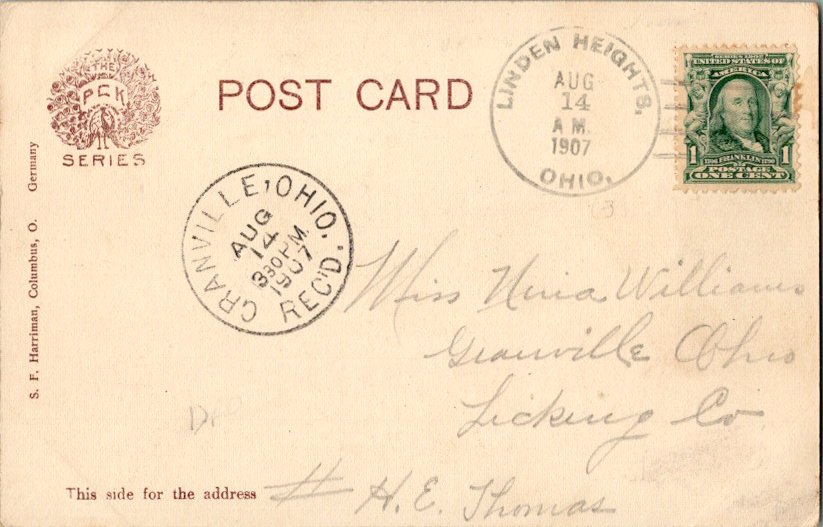 THE
PCK
SERIES
POST CARD
LINDEN HEIGHTS,
AUG
14
A M.
1907
OHIO.
SERIES 1902
UNITED STATES OF
AMERICA
1 1706 FRANKLIN 1790 1
POSTAGE
ONE CENT
GRANVILLE, OHIO.
AUG
14
330 PM
1907
REC'D.
S. F. Harriman, Columbus, O. Germany
Miss Nina Williams
Granville Ohio
Licking Co
DPO
This side for the address
# H. E. Thomas